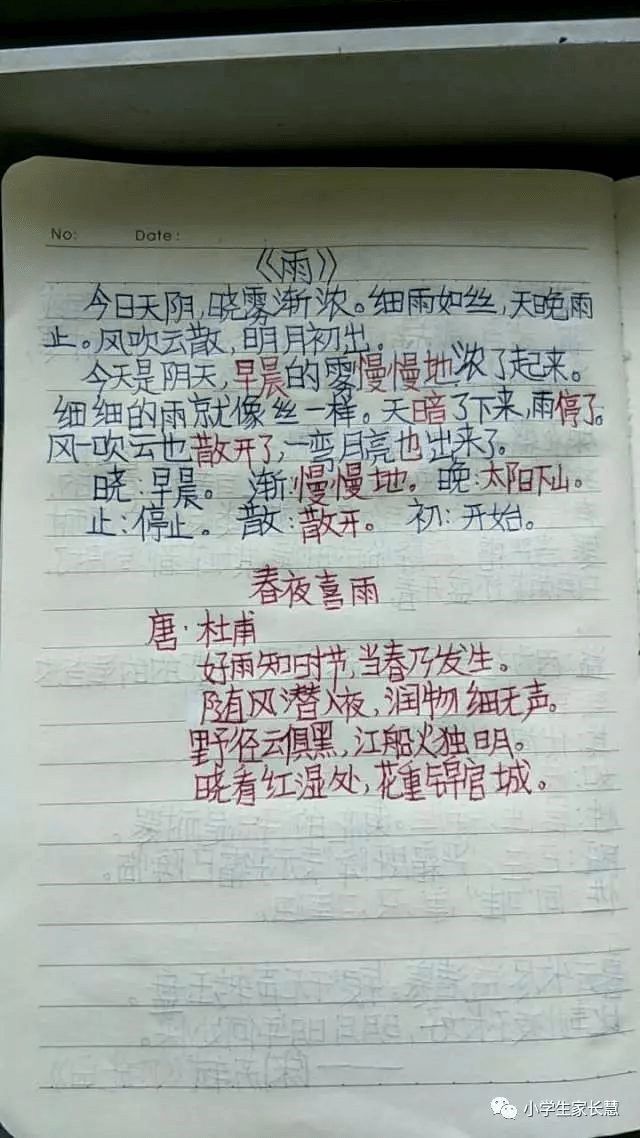 No:  Date:
《雨》
今日天阴,晓雾渐浓。细雨如丝,天晚雨
止。风吹云散,明月初出。
今天是阴天,早晨的雾慢慢地浓了起来。
细细的雨就像丝一样。天暗了下来,雨停了。
风一吹云也散开了,一弯月亮也出来了。
晓:早晨。 渐:慢慢地。 晚:太阳下山。
止:停止。 散:散开。 初:开始。
春夜喜雨
唐·杜甫
好雨知时节,当春乃发生。
随风潜入夜,润物细无声。
野径云俱黑,江船火独明。
晓看红湿处,花重锦官城。
小学生家长慧